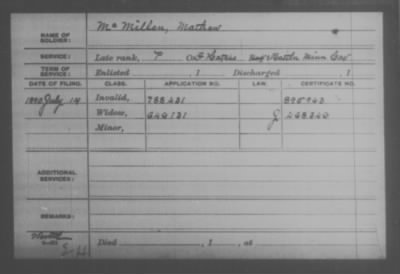 NAME OF SOLDIER: McMillen, Mathew
SERVICE: Late rank, P Co. Minn Cav
TERM OF SERVICE: Enlisted , 1 Discharged , 1
DATE OF FILING. CLASS. APPLICATION NO. LAW. CERTIFICATE NO.
1890 July 14 Invalid, 788431 890943
Widow, 640131
Minor,
ADDITIONAL SERVICES:
REMARKS:
Died , 1 , at